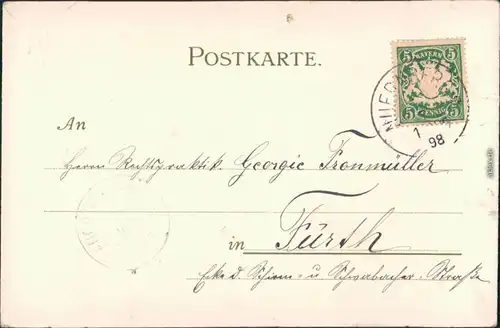 POSTKARTE.
5 BAYERN 5
5 PFENNIG 5
1
98
An
Herrn Rechtspraktik. Georgie Fronmüller
in Fürth
Ecke d. Schirm- u. Schwabacher-Straße